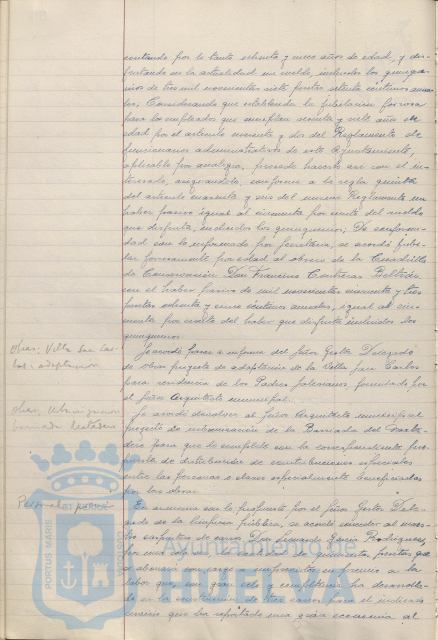 contando por lo tanto setenta y cinco años de edad, y dis-
frutando en la actualidad un sueldo, incluidos los quinque-
nios de tres mil novecientas siete pesetas setenta céntimos anua-
les. Considerando que establecida la jubilación forzosa
para los empleados que cumplan sesenta y siete años de
edad por el artículo noventa y dos del Reglamento de
funcionarios administrativos de este Ayuntamiento,
aplicable por analogía, procede hacerlo así con el in-
teresado, asignándole, conforme a la regla quinta
del artículo cuarenta y seis del mismo Reglamento un
haber pasivo igual al cincuenta por ciento del sueldo
que disfruta, incluidos los quinquenios; De conformi-
dad con lo informado por Secretaría, se acordó jubi-
lar forzosamente por edad al obrero de la Cuadrilla
de Conservación Don Francisco Contreras Beltrán,
con el haber pasivo de mil novecientas cincuenta y tres
pesetas ochenta y cinco céntimos anuales, igual al cin-
cuenta por ciento del haber que disfruta incluidos los
quinquenios.
Obras. Villa San Car-
los: adaptación
Se acordó pasar a informe del Señor Gestor Delegado
de obras proyecto de adaptación de la Villa San Carlos
para residencia de los Padres Salesianos, formulado por
el Señor Arquitecto municipal.
Obras, Urbanización
barriada Matadero
Se acordó devolver al Señor Arquitecto municipal
proyecto de urbanización de la Barriada del Mata-
dero para que lo complete con la correspondiente pro-
puesta de distribución de contribuciones especiales
entre las personas o clases especialmente beneficiadas
por las obras.
Personal
En armonía con lo propuesto por el Señor Gestor Dele-
gado de la limpieza pública, se acordó conceder al maes-
tro carpintero de carros Don Leonardo García Rodríguez,
por una sola vez, de pesetas, que
se abonará con cargo a imprevistos, en premio a la
labor que, con gran celo y competencia ha desarrolla-
do en la construcción de tres carros para el indicado
servicio que ha reportado una gran economía al
Ayuntamiento de
HUELVA
PORTUS MARIS
CUSTODIA